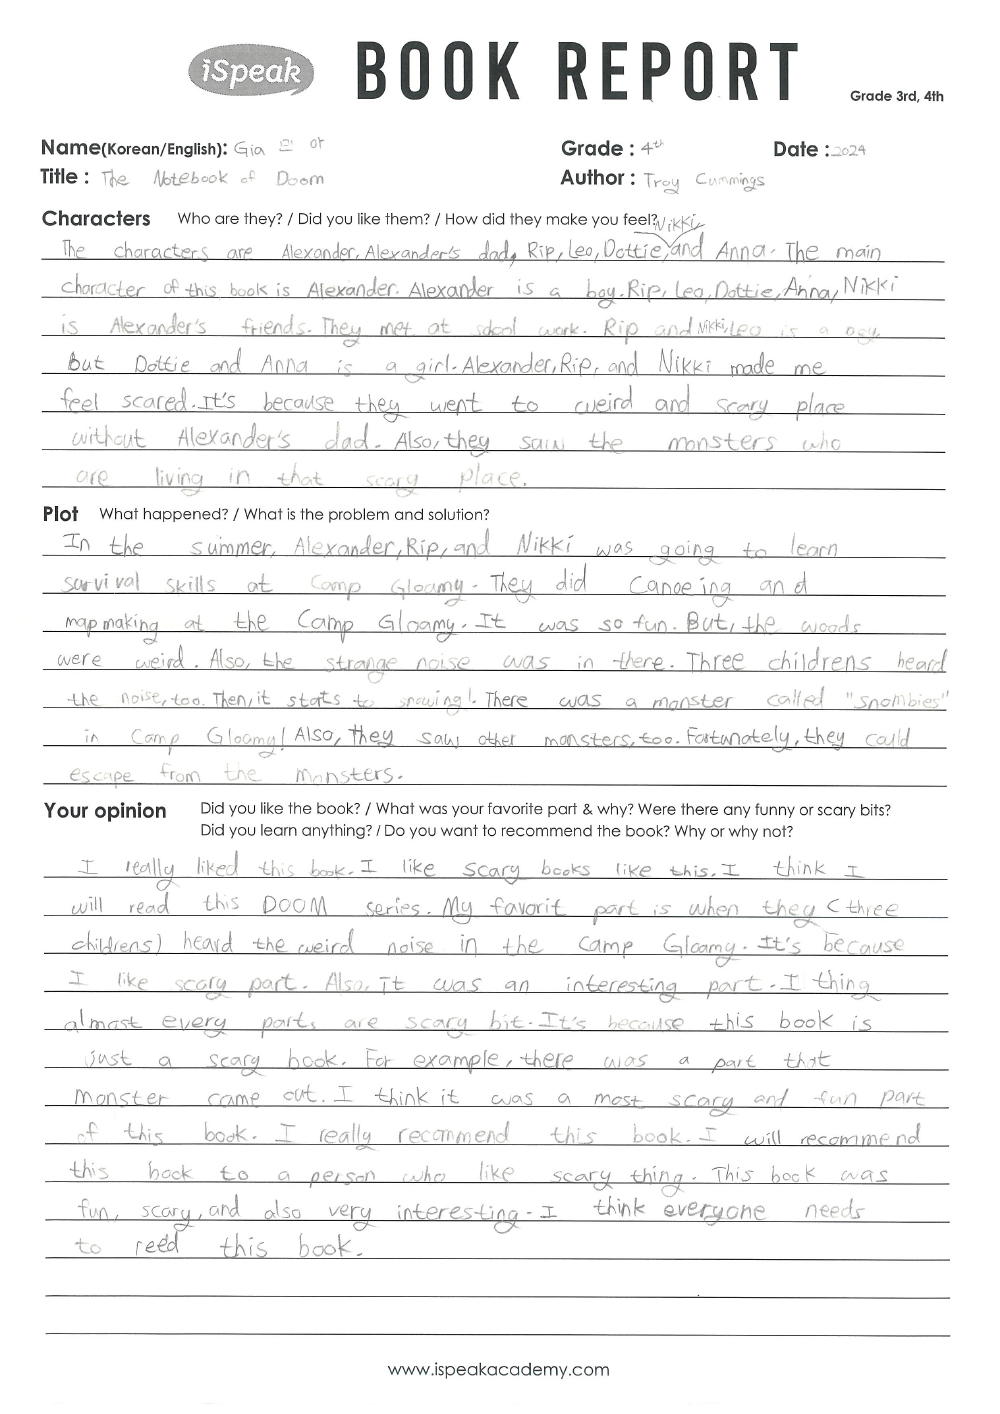 iSpeak BOOK REPORT
Grade 3rd, 4th
Name(Korean/English): Gia Grade : 4th Date : 2024
Title : The Notebook of Doom Author : Troy Cummings
Characters Who are they? / Did you like them? / How did they make you feel?
Nikki
The characters are Alexander, Alexander's dad, Rip, Leo, Dottie, and Anna. The main
character of this book is Alexander. Alexander is a boy. Rip, Leo, Dottie, Anna, Nikki
is Alexander's friends. They met at school work. Rip and Nikki, Leo is a boy.
But Dottie and Anna is a girl. Alexander, Rip, and Nikki made me
feel scared. It's because they went to weird and scary place
without Alexander's dad. Also, they saw the monsters who
are living in that scary place.
Plot What happened? / What is the problem and solution?
In the summer, Alexander, Rip, and Nikki was going to learn
survival skills at Camp Gloamy. They did Canoeing and
mapmaking at the Camp Gloamy. It was so fun. But, the woods
were weird. Also, the strange noise was in there. Three childrens heard
the noise, too. Then, it starts to snowing! There was a monster called "Snombies"
in Camp Gloamy! Also, they saw other monsters, too. Fortunately, they could
escape from the monsters.
Your opinion Did you like the book? / What was your favorite part & why? Were there any funny or scary bits?
Did you learn anything? / Do you want to recommend the book? Why or why not?
I really liked this book. I like scary books like this. I think I
will read this DOOM series. My favorit part is when they (three
childrens) heard the weird noise in the Camp Gloamy. It's because
I like scary part. Also, it was an interesting part. I thing
almost every parts are scary bit. It's because this book is
just a scary book. For example, there was a part that
monster came out. I think it was a most scary and fun part
of this book. I really recommend this book. I will recommend
this book to a person who like scary thing. This book was
fun, scary, and also very interesting. I think everyone needs
to reed this book.
www.ispeakacademy.com